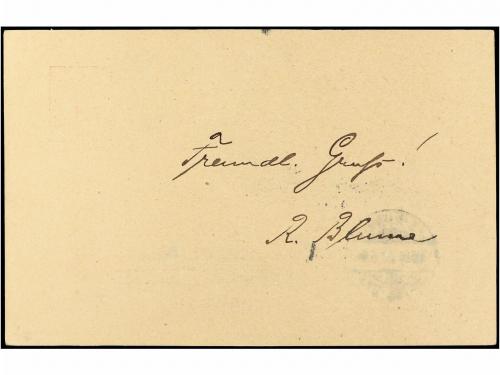 Freundl. Gruß!
R. Blume